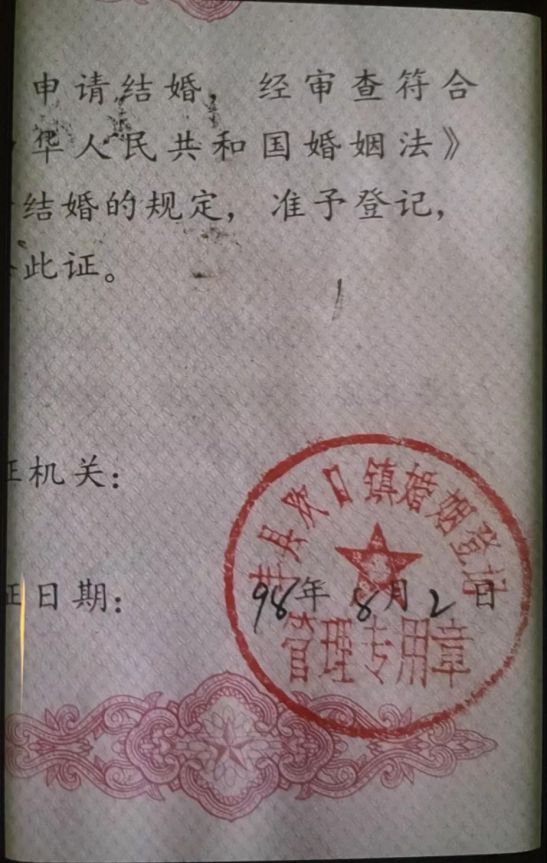 申请结婚，经审查符合
华人民共和国婚姻法》
结婚的规定，准予登记，
此证。
证机关：
证日期：98年8月2日
县 口镇婚姻登记
管理专用章